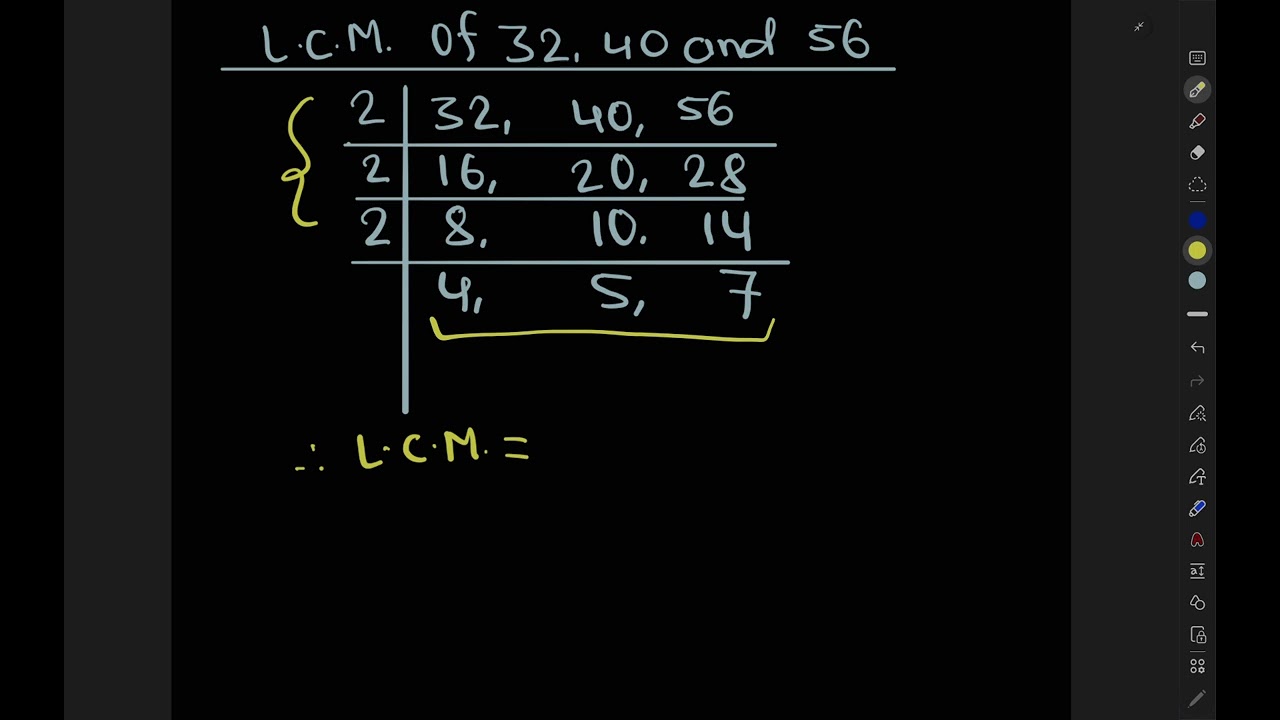 L.C.M. of 32, 40 and 56
2 32, 40, 56
2 16, 20, 28
2 8, 10. 14
4, 5, 7
∴ L.C.M. =